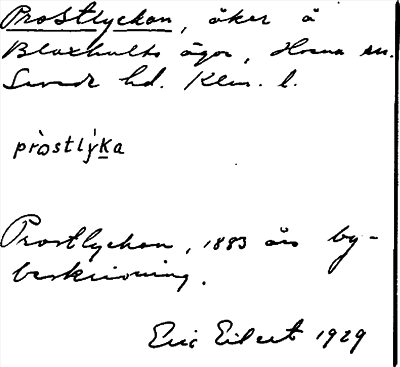 Prostlyckan, åker å
Bloxhults ägor, Horna sn.
Sunds hd. Klm. l.
pròstlỳka
Prostlyckan, 1883 års by-
beskrivning.
Eric Eilert 1929